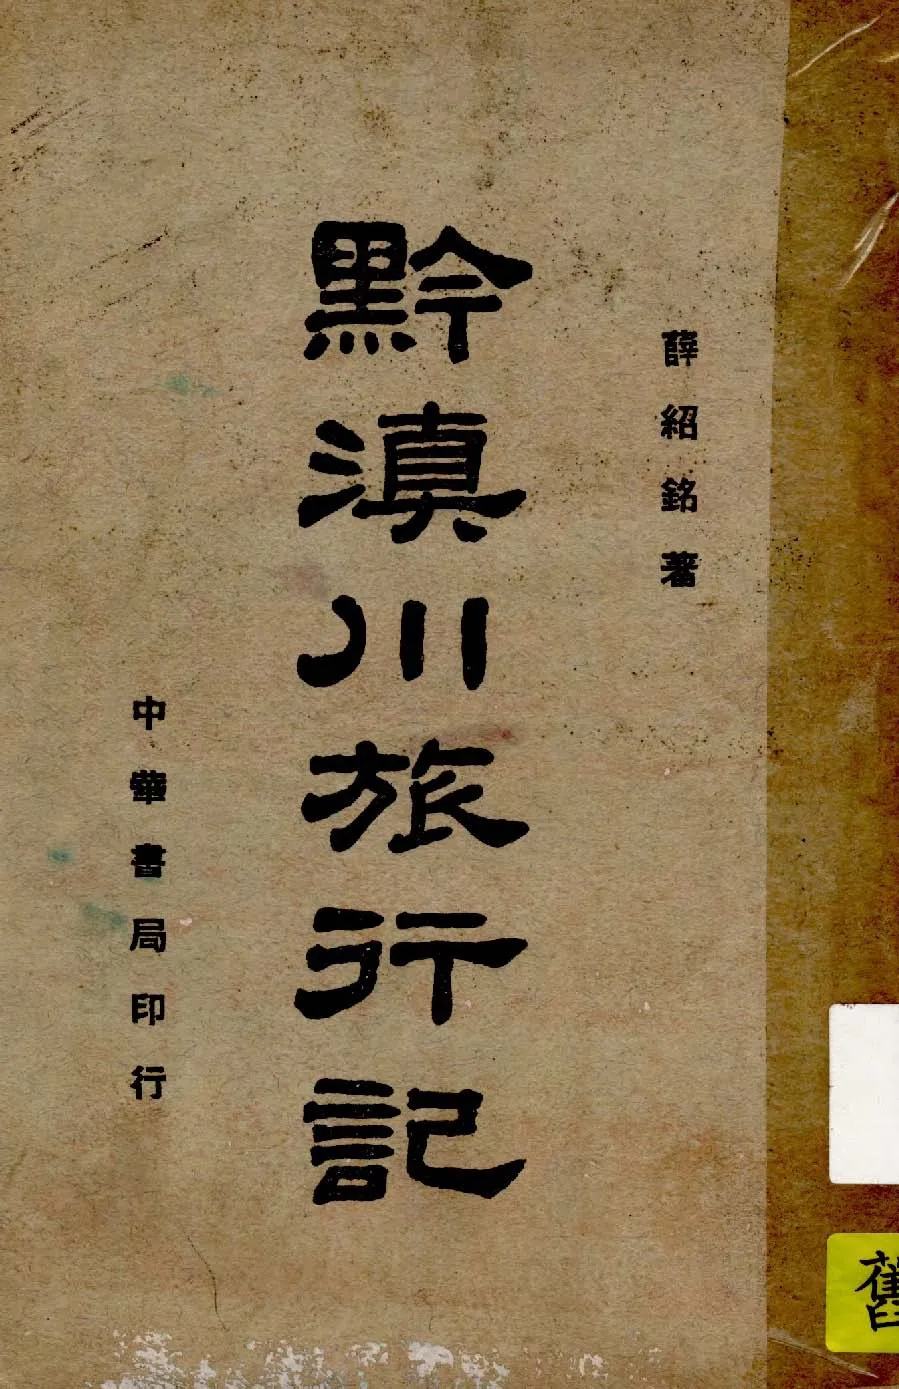 薛紹銘著
黔滇川旅行記
中華書局印行
舊